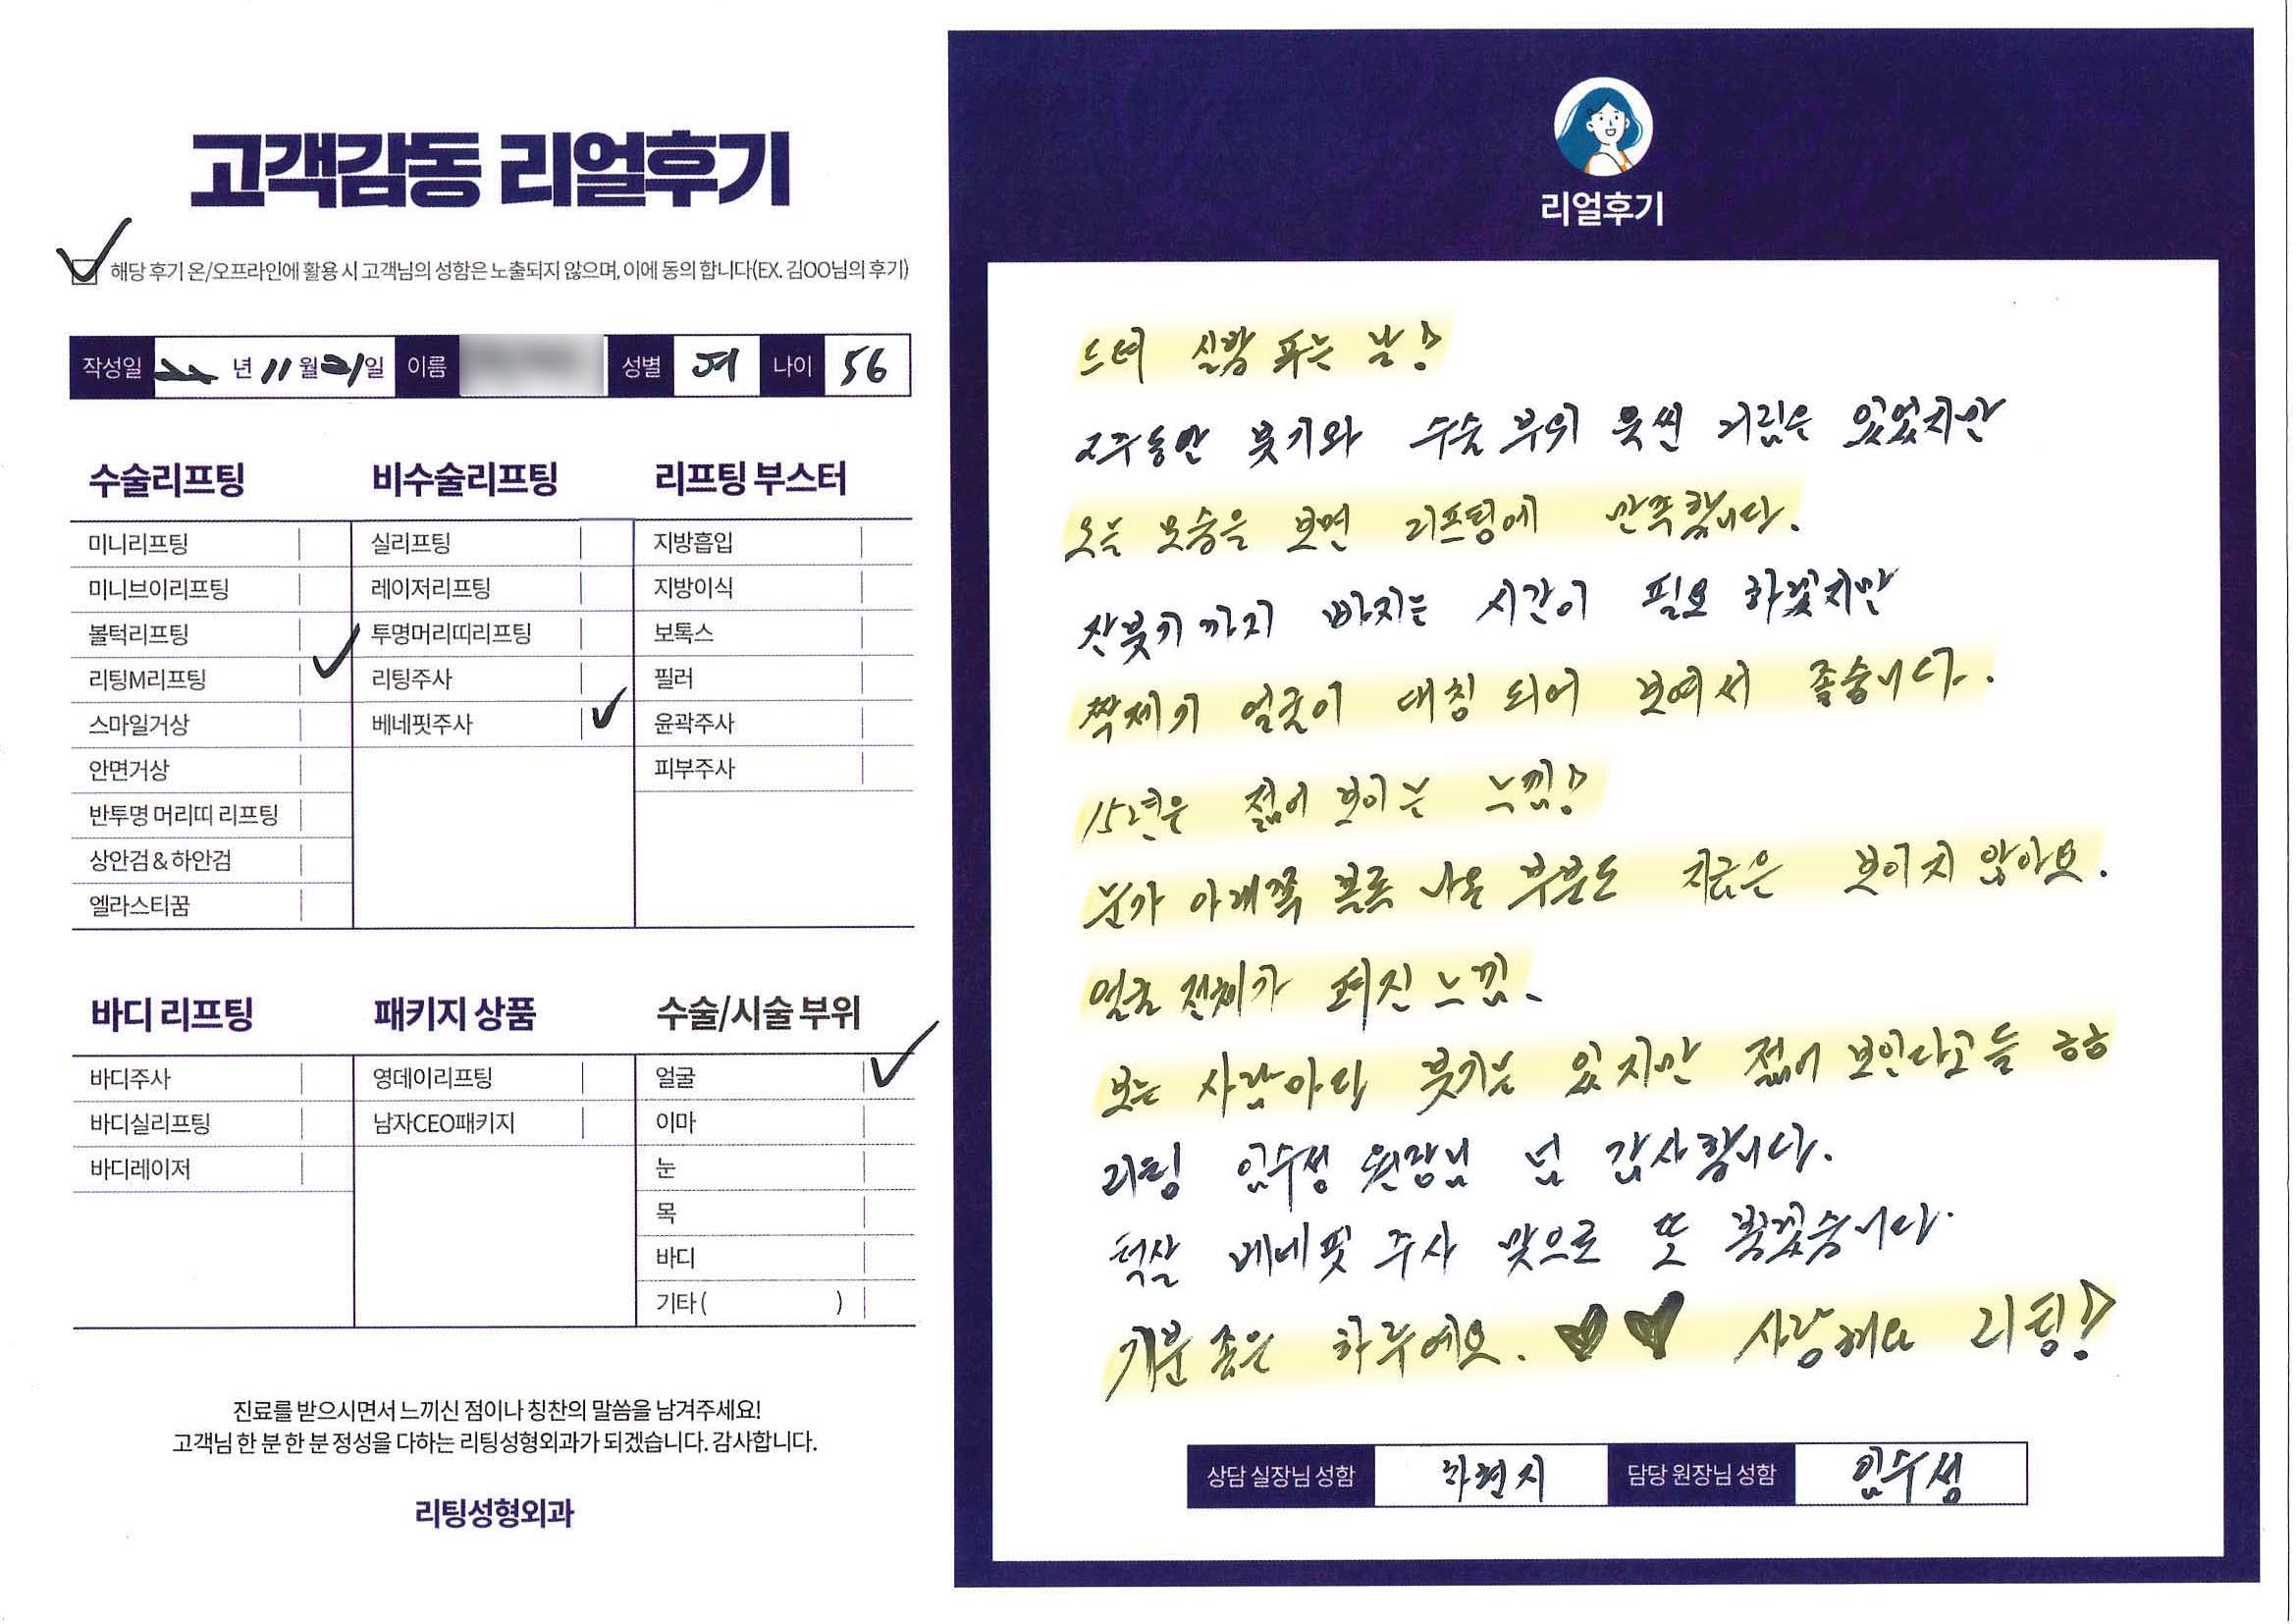 고객감동 리얼후기
해당 후기 온/오프라인에 활용 시 고객님의 성함은 노출되지 않으며, 이에 동의 합니다(EX. 김OO님의 후기)
작성일 22 년 11 월 21 일 이름 성별 여 나이 56
수술리프팅
미니리프팅
미니브이리프팅
볼턱리프팅
리팅M리프팅
스마일거상
안면거상
반투명 머리띠 리프팅
상안검 & 하안검
엘라스티꿈
비수술리프팅
실리프팅
레이저리프팅
투명머리띠리프팅
리팅주사
베네핏주사
리프팅 부스터
지방흡입
지방이식
보톡스
필러
윤곽주사
피부주사
바디 리프팅
바디주사
바디실리프팅
바디레이저
패키지 상품
영데이리프팅
남자CEO패키지
수술/시술 부위
얼굴
이마
눈
목
바디
기타 ( )
진료를 받으시면서 느끼신 점이나 칭찬의 말씀을 남겨주세요!
고객님 한 분 한 분 정성을 다하는 리팅성형외과가 되겠습니다. 감사합니다.
리팅성형외과
리얼후기
드뎌 실밥 푸는 날!
2주동안 붓기와 수술 부위 욱씬 거림은 있었지만
오늘 모습을 보면 리프팅에 만족합니다.
잔붓기까지 빠지는 시간이 필요 하겠지만
짝제기 얼굴이 대칭 되어 보여서 좋습니다.
15년은 젊어 보이는 느낌!
눈가 아래쪽 볼록 나온 부분도 지금은 보이지 않아요.
얼굴 전체가 펴진 느낌.
보는 사람마다 붓기는 있지만 젊어 보인다고들 ㅎㅎ
리팅 임수성 원장님 넘 감사합니다.
턱살 베네핏 주사 맞으로 또 뵙겠습니다.
기분 좋은 하루예요. ♥♥ 사랑해요 리팅!
상담 실장님 성함 하현지 담당 원장님 성함 임수성